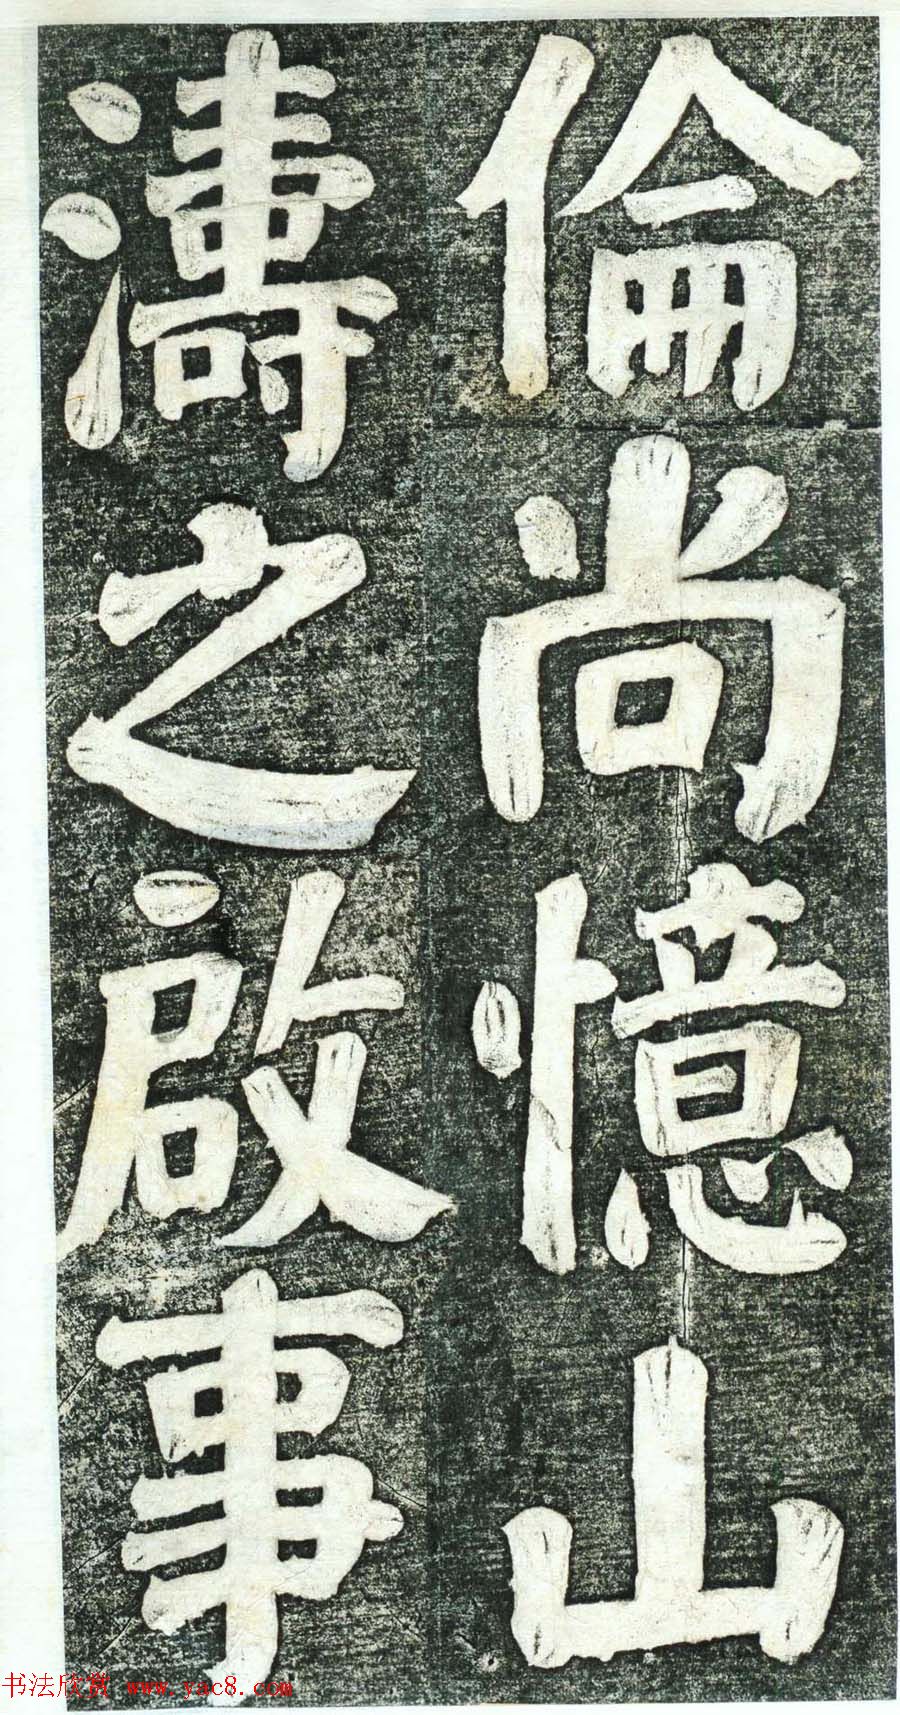 倫尚憶山
濤之啟事
书法欣赏 www.yac8.com